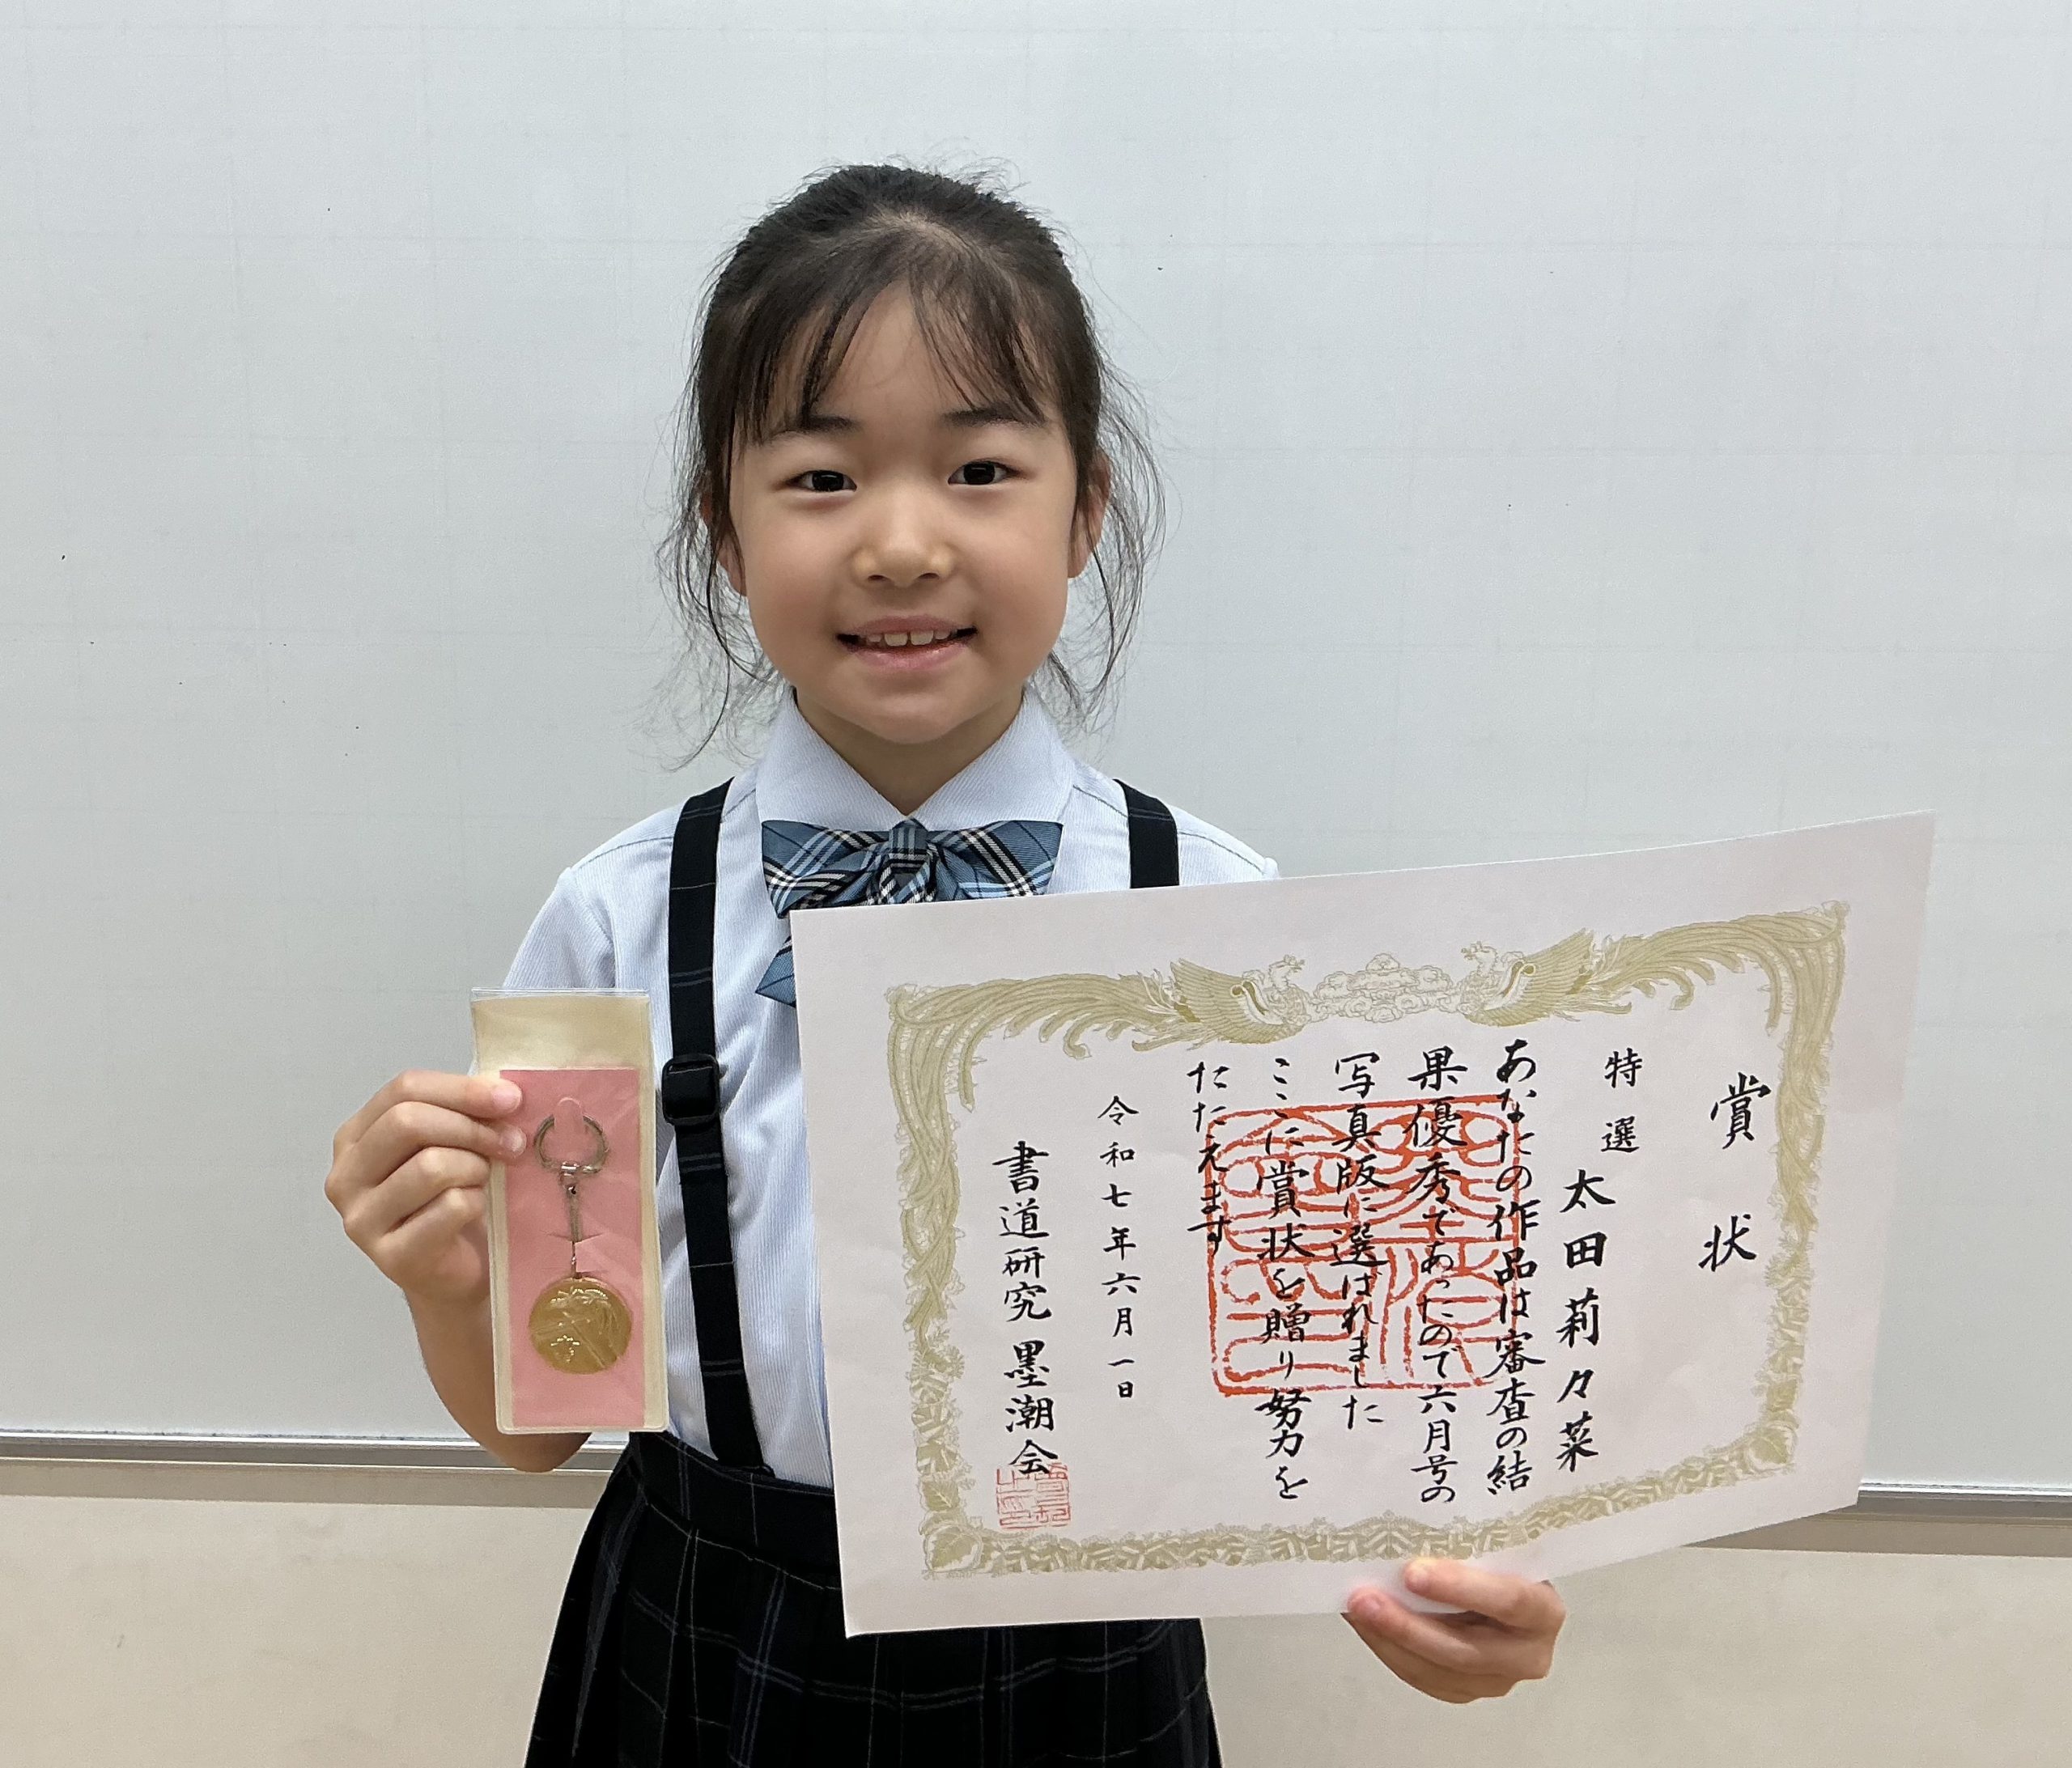 賞状
特選
太田莉々菜
あなたの作品は審査の結
果優秀であったので六月号の
写真版に選ばれました
ここに賞状を贈り努力を
たたえます
令和七年六月一日
書道研究墨潮会